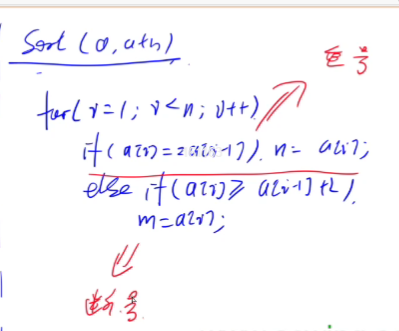 Sort(a, a+n)
重号
for(i=1; i<n; i++)
if(a[i]==a[i-1]) n=a[i];
else if(a[i]≥a[i-1]+2)
m=a[i];
断号